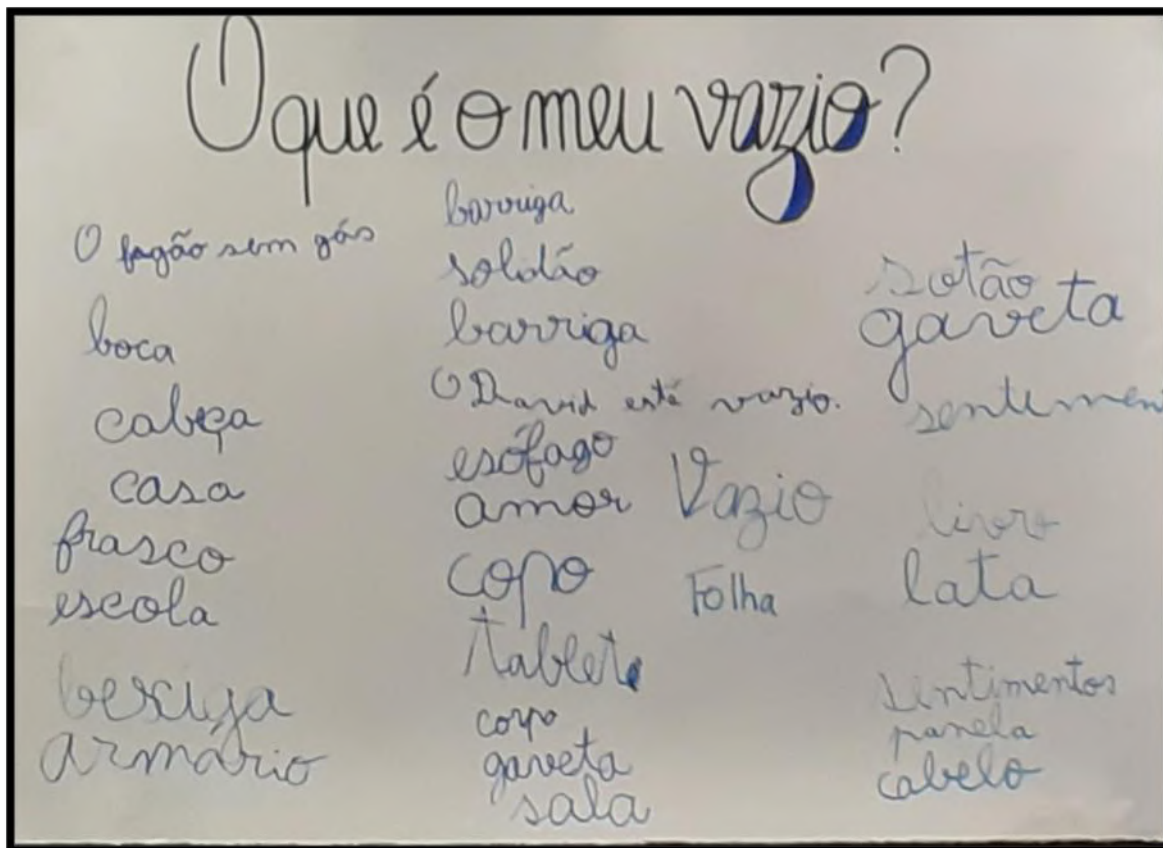 O que é o meu vazio?
O fogão sem gás
boca
cabeça
casa
frasco
escola
bexiga
armário
barriga
solidão
barriga
O David está vazio.
esófago
amor
copo
tablete
corpo
gaveta
sala
Vazio
Folha
sotão
gaveta
sentimen
livro
lata
sentimentos
panela
cabelo